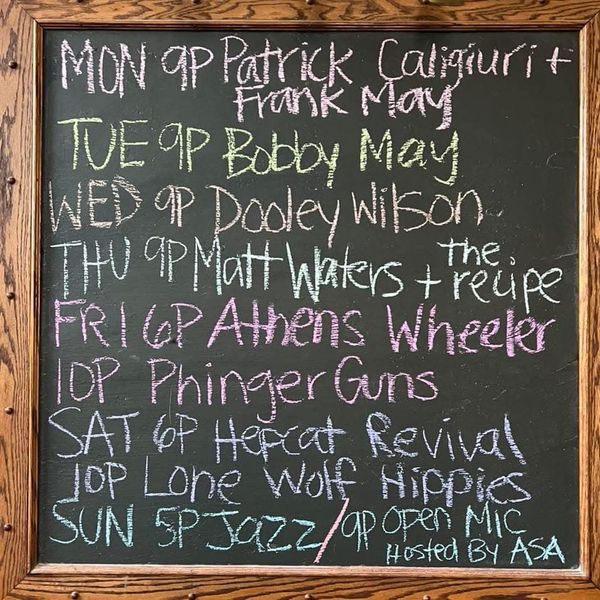 MON 9P Patrick Caligiuri +
Frank May
TUE 9P Bobby May
WED 9P Dooley Wilson
THU 9P Matt Waters + The recipe
FRI 6P Athens Wheeler
10P Phinger Guns
SAT 6P Hepcat Revival
10P Lone Wolf Hippies
SUN 5P Jazz / 9P Open Mic
Hosted By ASA